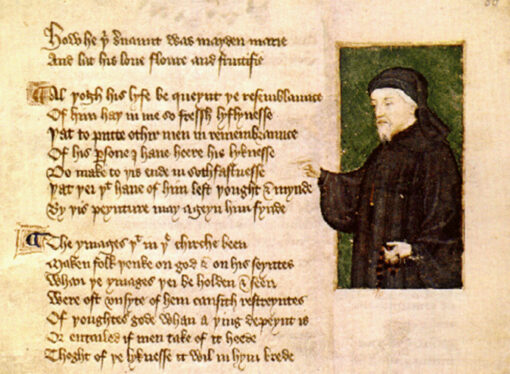 How he þͥ ẜuaunt was mayden marie
And lat his loue floure and fructifie
Al þogh his lyfe be queynt þe resemblaunce
Of him haþ in me so fressh lyflynesse
Þat to putte othir men in remembraunce
Of his ꝑsone I haue heere his lyknesse
Do make to þis ende in sothfastnesse
Þat þei þᵗ haue of him left þought & mynde
By þis peynture may ageyn him fynde
The ymages þᵗ in þᵉ chirche been
Maken folk þenke on god & on his seyntes
Whan þe ymages þei be holden & seen
Were oft vnsyte of hem causith restreyntes
Of þoughtes gode whan a þing depeynt is
Or entailed if men take of it heede
Thoght of þe lyknesse it wil in hym brede